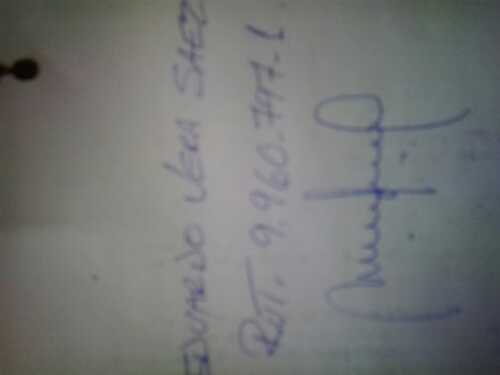 EDUARDO VERA SAEZ
RUT. 9.960.797-1